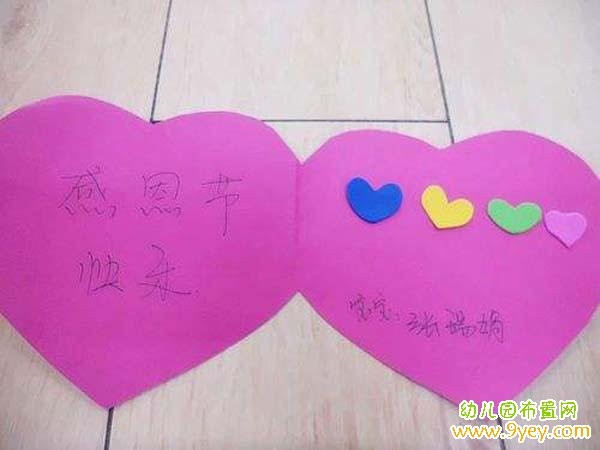 感恩节
快乐
宝宝:张瑞娟
幼儿园布置网
www.9yey.com